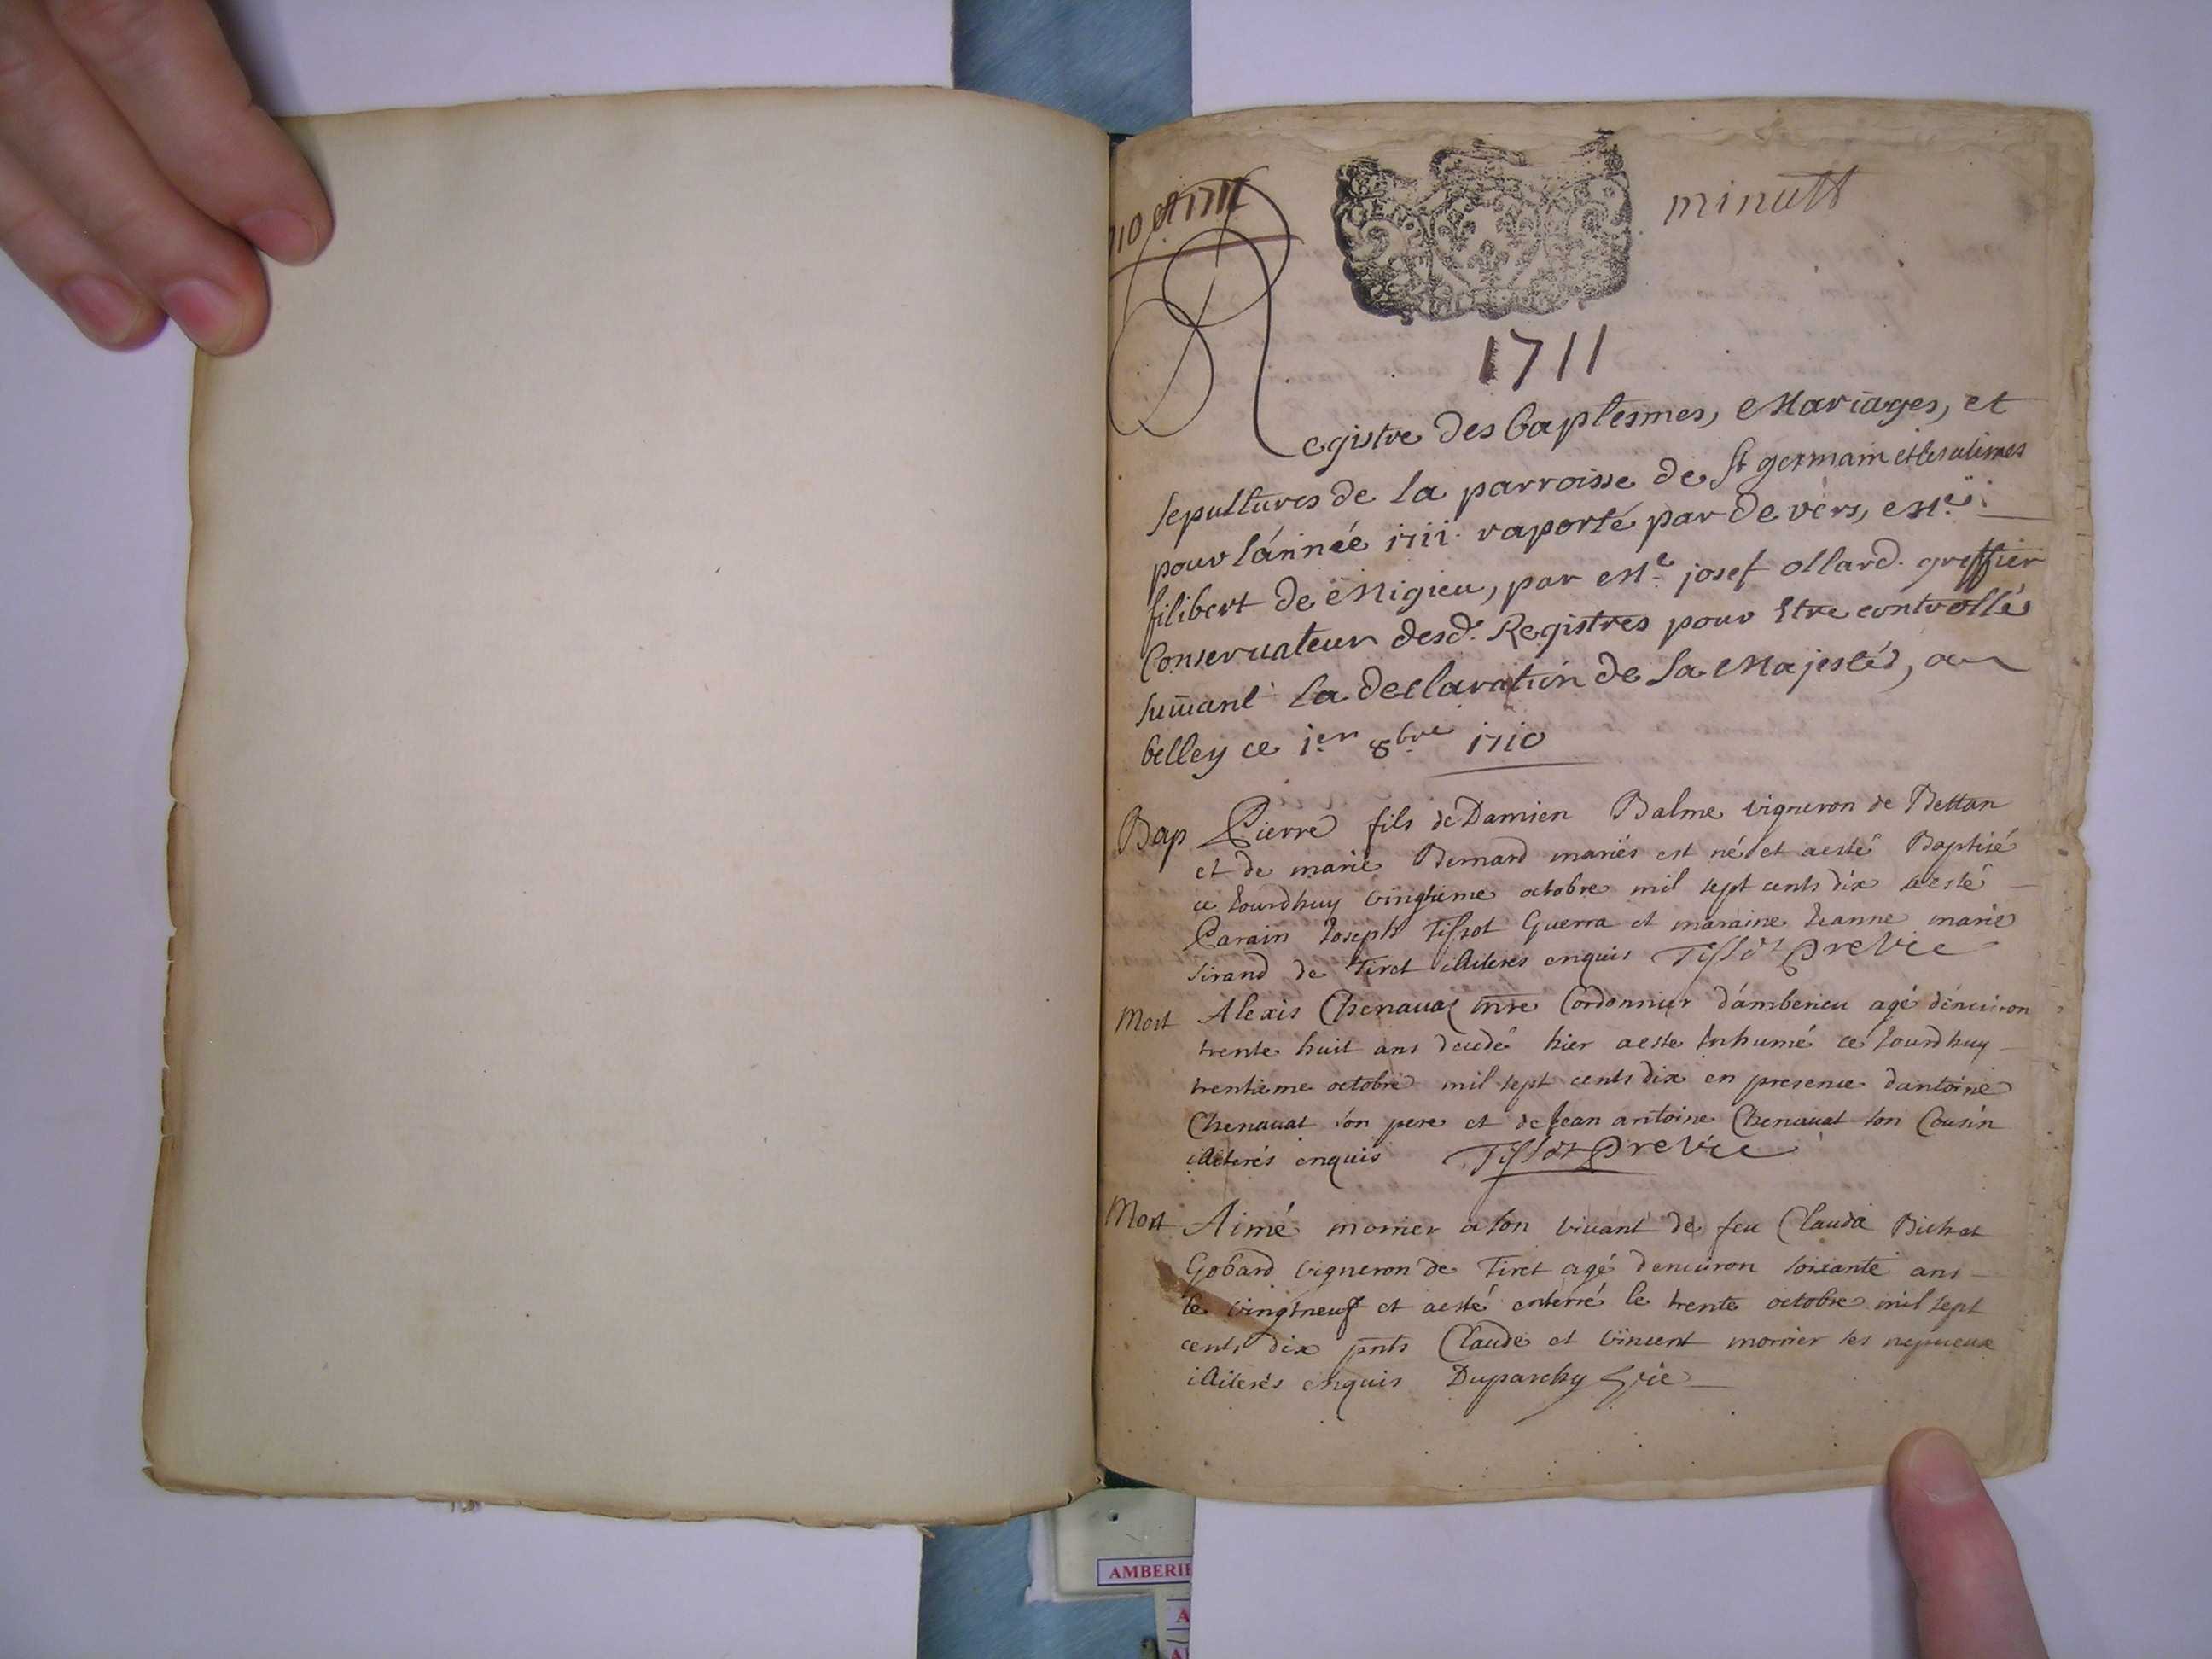 10 et 1711
minutt
1711
Registre des baptesmes, Mariages, et
sepultures de la parroisse de st germain
pour l'année 1711 raporté par devers, Me
filibert de Migieu, par Me josef ollard greffier
Conservateur desd. Registres pour Etre controllés
suivant la declaration de Sa Majestés, a
belley ce 1er 8bre 1710
Bap Pierre fils de Damien Balme vigneron de Bettan
et de marie Bernard mariés est né et aesté Baptisé
ce Iourdhuy vingtieme octobre mil sept cents dix aesté
Parain Ioseph Tissot Guerra et maraine Ieanne marie
sirand de Tiret illiterés enquis Tissot Pre Vic
Mort Alexis Chenavat Cordonnier d'amberieu agé d'environ
trente huit ans decedé hier aesté Inhumé ce Iourdhuy
trentieme octobre mil sept cents dix en presence dantoine
Chenavat son pere et de Jean antoine Chenavat son Cousin
illiterés enquis Tissot Pre Vic
Mort Aimé monier a son vivant de feu Claudä Bichat
Gobard vigneron de Tiret agé d'environ soixante ans
le vingtneuf et aesté enterré le trente octobre mil sept
cents dix pnts Claude et vincent monier ses nepveux
illiterés enquis Duparchy Vic
AMBERIE
A
A